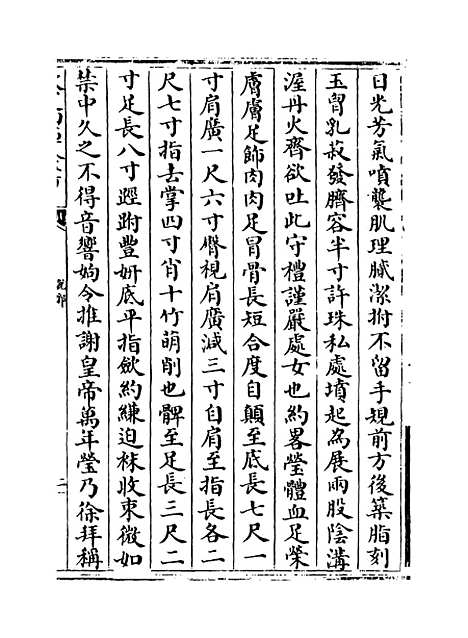 日光芳氣噴襲肌理膩潔拊不留手規前方後築脂刻
玉胷乳菽發臍容半寸許珠私處墳起為展兩股陰溝
渥丹火齊欲吐此守禮謹嚴處女也約畧瑩體血足榮
膚膚足飾肉肉足冒骨長短合度自顛至底長七尺一
寸肩廣一尺六寸臀視肩廣減三寸自肩至指長各二
尺七寸指去掌四寸肖十竹萌削也髀至足長三尺二
寸足長八寸踁跗豐妍底平指歛約縑迫袜收束微如
禁中久之不得音響姁令推謝皇帝萬年瑩乃徐拜稱